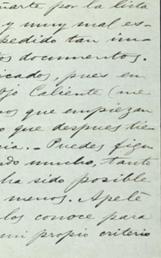 ñarte por la lista
y muy mal es-
pedido tan im-
os documentos.
icados, pues en
Ojo Caliente (me
os que empiezan
o que despues tie-
Puedes figu
do mucho, tanto
ha sido posible
menos. Apelé
los conoce para
mi propio criterio